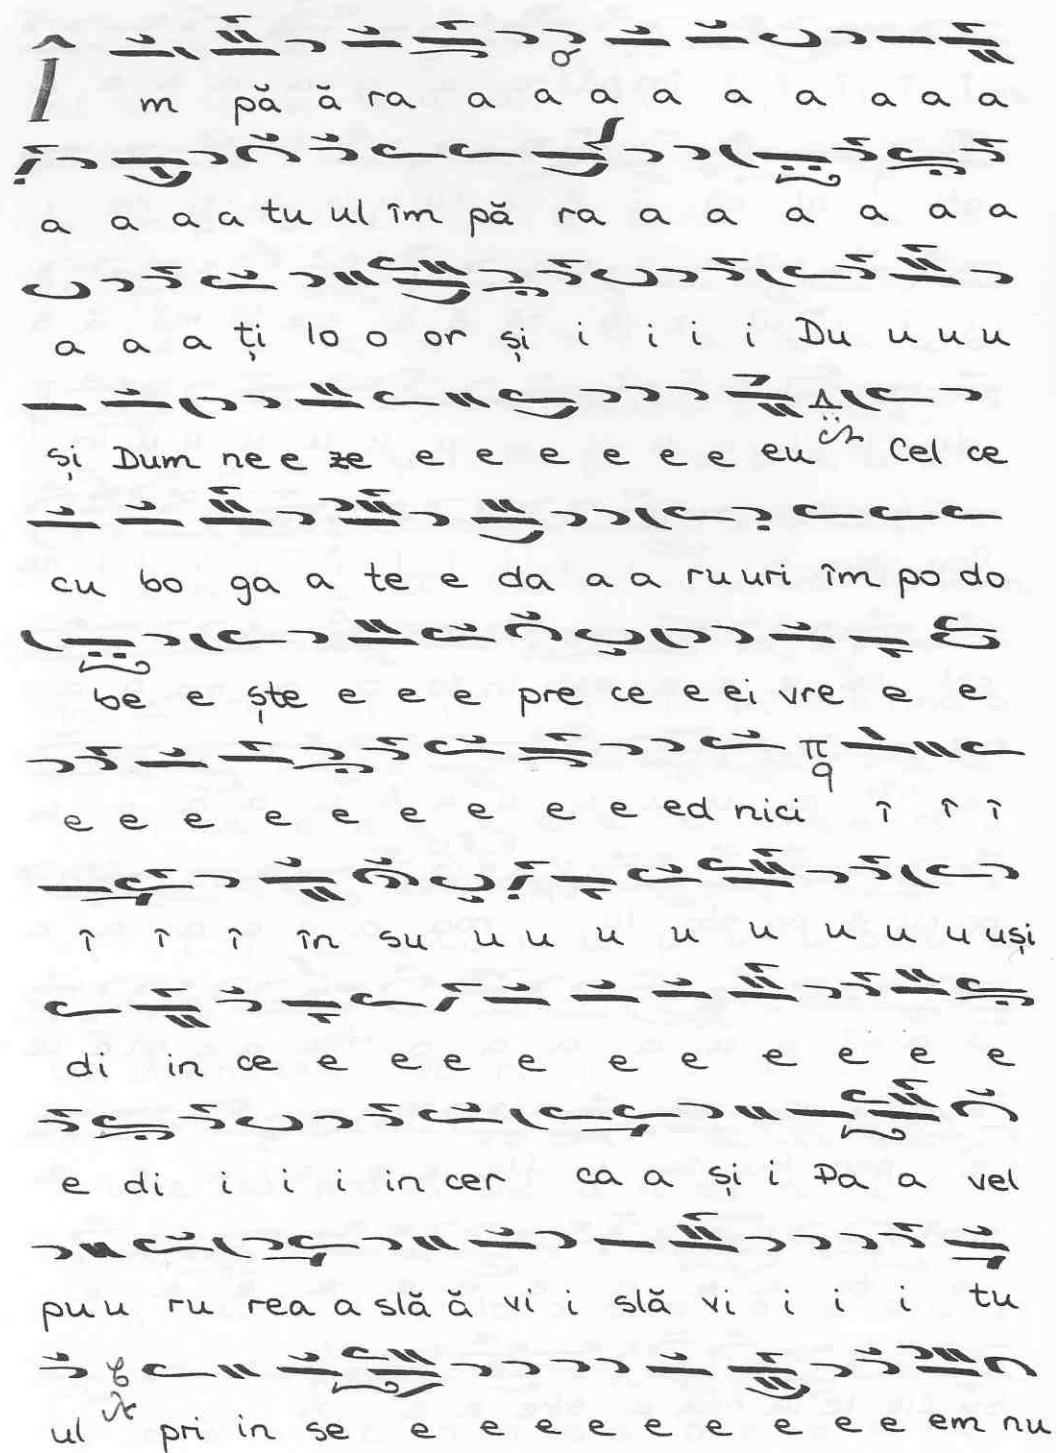 Îm pă ă ra a a a a a a a a a
a a a a tu ul îm pă ra a a a a a a
a a a ți lo o or și i i i i Du u u u
și Dum ne e ze e e e e e e eu Cel ce
cu bo ga a te e da a a ru uri îm po do
be e ște e e e pre ce e ei vre e e
e e e e e e e e e ed nici î î î
î î î în su u u u u u u u u uși
di in ce e e e e e e e e e e
e di i i i in cer ca a și i Pa a vel
pu u ru rea a slă ă vi i slă vi i i i tu
ul pri in se e e e e e e e e e em nu